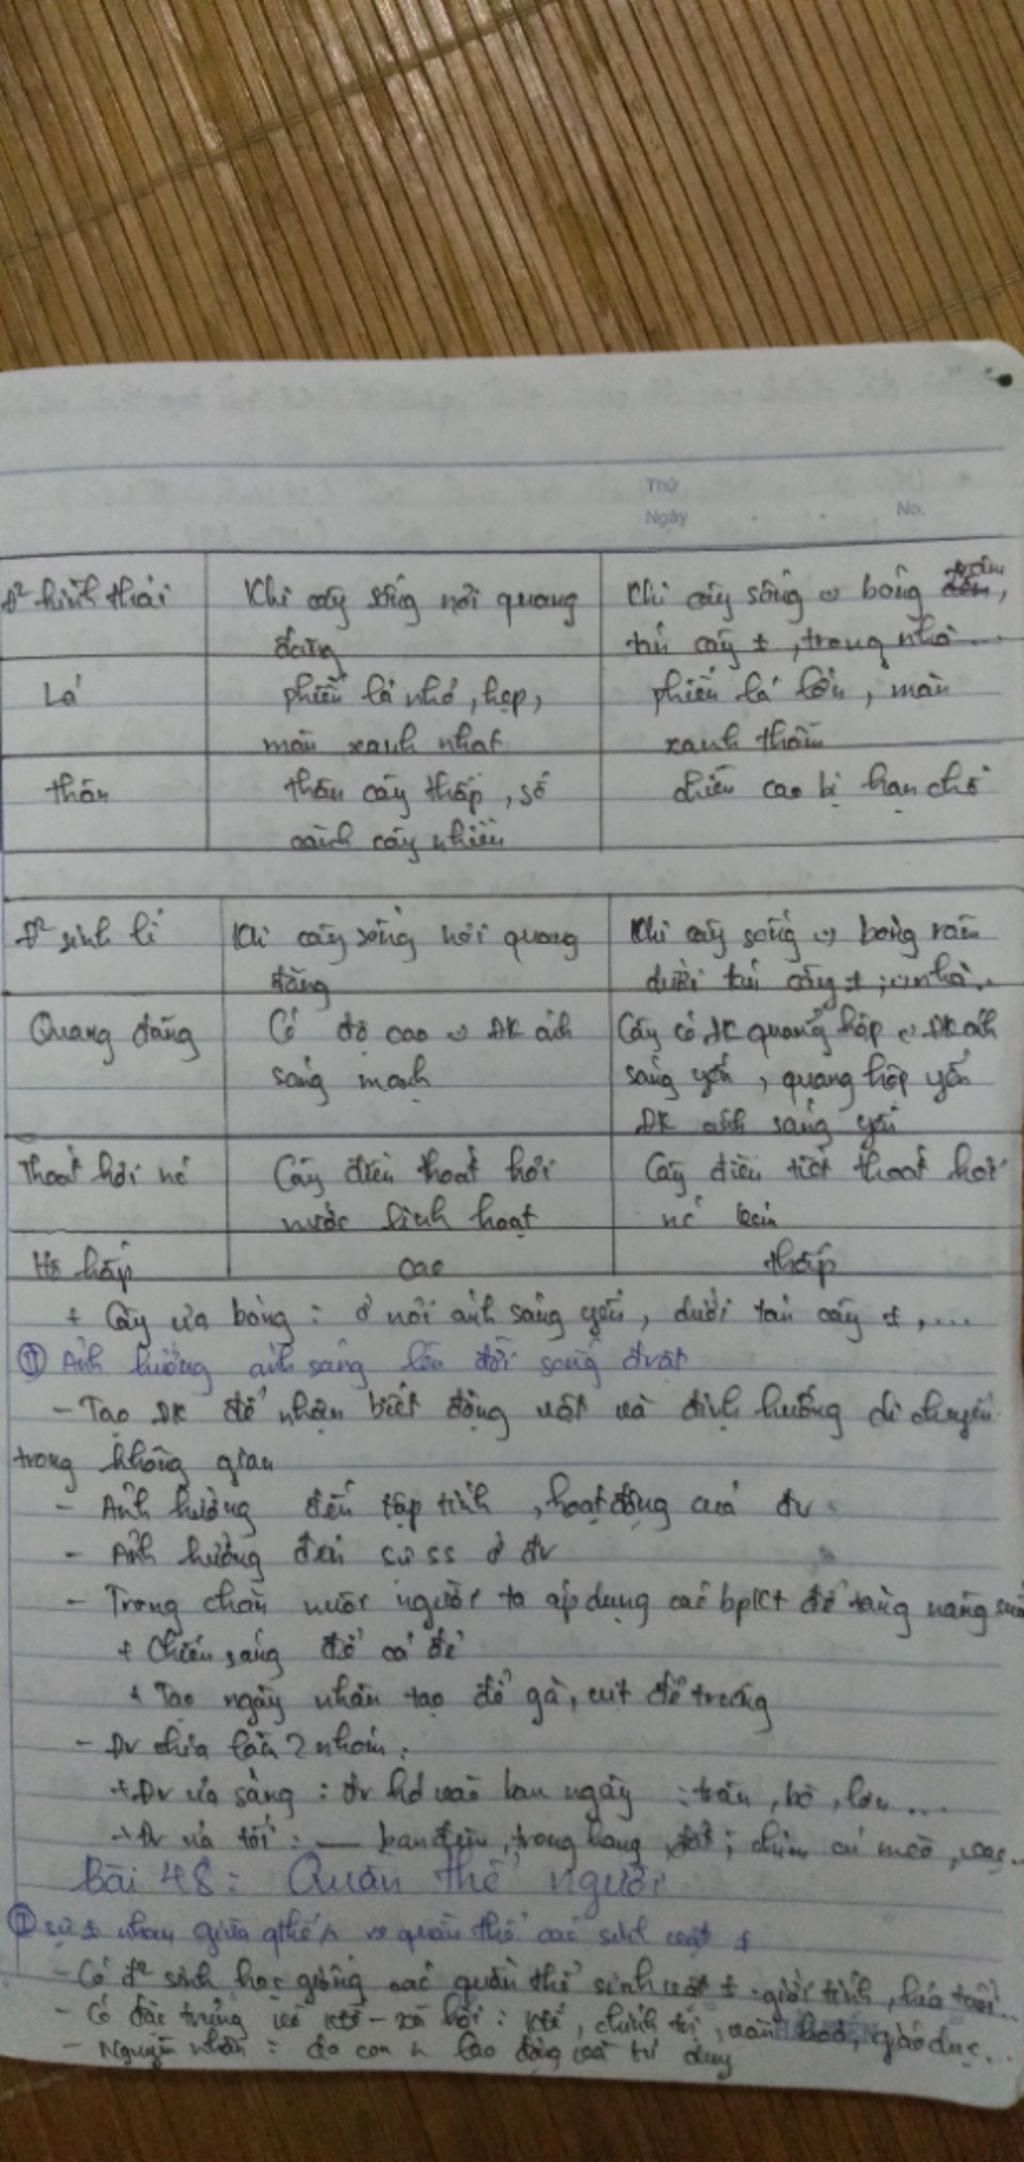 Thứ
Ngày No.
Đ² hình thái Khi cây sống nơi quang Khi cây sống bóng râm,
đãng tán cây ≠, trong nhà ...
Lá phiến lá nhỏ, hẹp, phiến lá lớn, màu
màu xanh nhạt xanh thẫm
thân thân cây thấp, số chiều cao bị hạn chế
cành cây nhiều
Đ² sinh lí Khi cây sống nơi quang Khi cây sống bóng râm
đãng dưới tán cây ≠, nhà..
Quang đãng Có độ cao ĐK ánh Cây có quang hợp ĐK ánh
sáng mạnh sáng yếu, quang hợp yếu
ĐK ánh sáng yếu
Thoát hơi nc Cây điều thoát hơi Cây điều tiết thoát hơi
nước linh hoạt nc kém
Hô hấp cao thấp
+ Cây ưa bóng: ở nơi ánh sáng yếu, dưới tán cây ≠, ...
II Ảnh hưởng ánh sáng lên đời sống đvật
- Tạo ĐK để nhận biết động vật và định hướng di chuyển
trong không gian
- Ảnh hưởng đến tập tính, hoạt động của đv
- Ảnh hưởng đến sự ss ở đv
- Trong chăn nuôi người ta áp dụng các bpKt để tăng năng suất
+ Chiếu sáng để cá đẻ
+ Tạo ngày nhân tạo để gà, vịt đẻ trứng
- Đv chia làm 2 nhóm:
+ Đv ưa sáng: đv hđ vào ban ngày: trâu, bò, lợn ...
+ Đv ưa tối: — ban đêm, trong hang đất; chim cú mèo,
Bài 48: Quần thể người
I sự ≠ nhau giữa qthể vs quần thể các sinh vật ≠
- Có đ² sinh học giống các quần thể sinh vật ≠: giới tính, lứa tuổi...
- Có đặc trưng về ktế - xã hội: ktế, chính trị, văn hoá, giáo dục...
- Nguyên nhân: do con lao động và tư duy